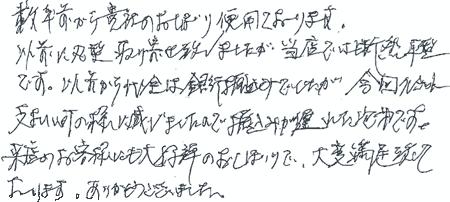 数年前から貴社のおしぼり使用しております。
以前に丸型取り寄せ致しましたが当店では断然平型
です。以前から代金は銀行振込みでしたが今回
支払い可の様に感じましたので振込みが遅れた次第です。
来店のお客様にも大好評のおしぼりで、大変満足致して
おります。ありがとうございました。